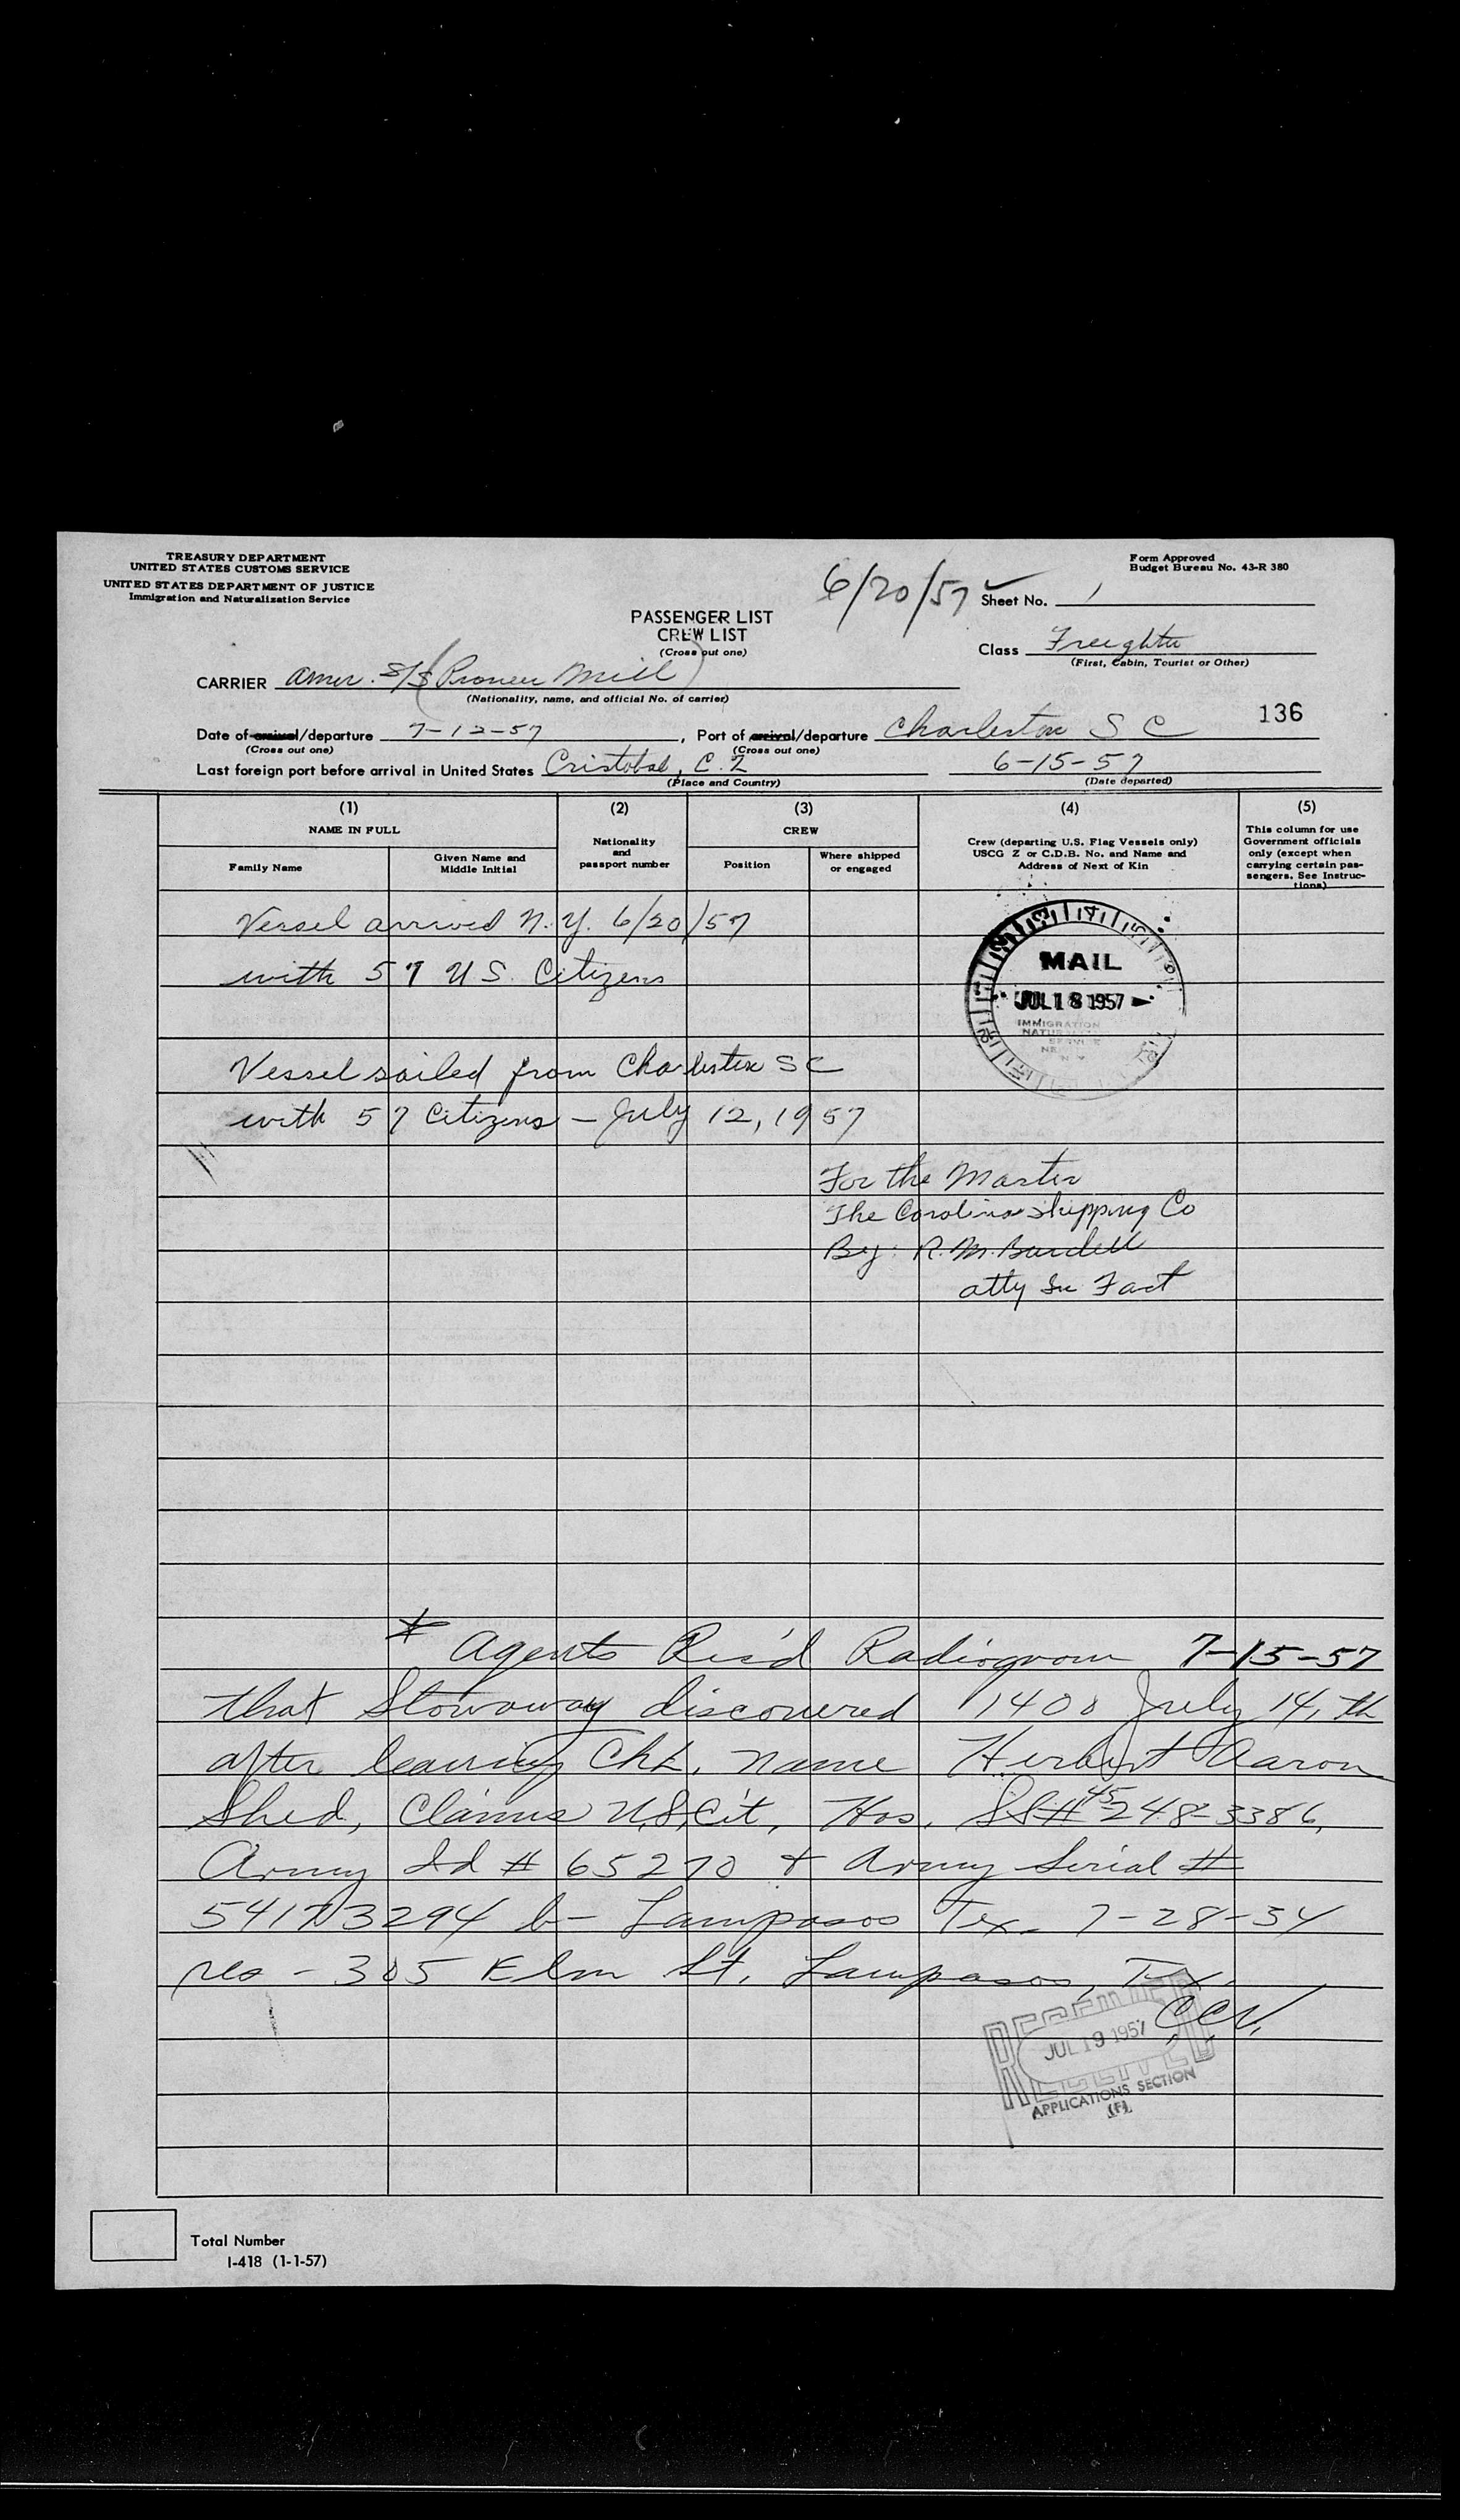 TREASURY DEPARTMENT
UNITED STATES CUSTOMS SERVICE
UNITED STATES DEPARTMENT OF JUSTICE
Immigration and Naturalization Service
Form Approved
Budget Bureau No. 43-R 380
6/20/57
Sheet No. 1
PASSENGER LIST
CREW LIST
(Cross out one)
Class Freighter
(First, Cabin, Tourist or Other)
CARRIER Amer. S/S (Pioneer Mill)
(Nationality, name, and official No. of carrier)
136
Date of arrival/departure 7-12-57, Port of arrival/departure Charleston S C
(Cross out one) (Cross out one)
Last foreign port before arrival in United States Cristobal, C.Z 6-15-57
(Place and Country) (Date departed)
(1) (2) (3) (4) (5)
NAME IN FULL
Family Name
Given Name and
Middle Initial
Nationality
and
passport number
CREW
Position
Where shipped
or engaged
Crew (departing U.S. Flag Vessels only)
USCG Z or C.D.B. No. and Name and
Address of Next of Kin
This column for use
Government officials
only (except when
carrying certain pas-
sengers. See Instruc-
tions)
Vessel arrived N.Y. 6/20/57
with 57 U S. Citizens
MAIL
JUL 18 1957
IMMIGRATION
Vessel sailed from Charleston S C
with 57 Citizens - July 12, 1957
For the Master
The Carolina Shipping Co
By: R. M. Burdell
atty In Fact
* Agents Rec'd Radiogram 7-15-57
that Stowaway discovered 1400 July 14, th
after leaving Chk. name Herbert Aaron
Shed, Claims U.S. Cit, Has, SS# 45-248-3386,
Army Id # 65270 + Army Serial #
54173294 b- Lampasas Tex. 7-28-34
res - 305 Elm St. Lampasas, Tex.
RECEIVED
JUL 19 1957
APPLICATIONS SECTION
(F).
Total Number
I-418 (1-1-57)